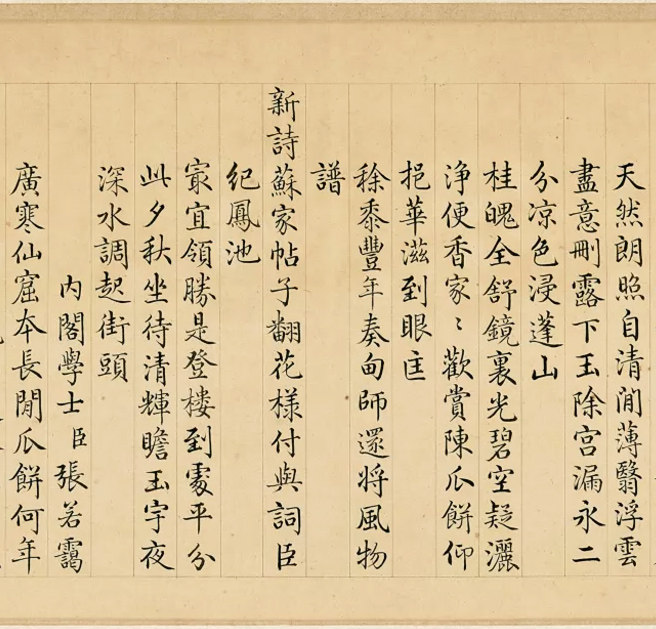 天然朗照自清澗薄翳浮雲
盡意刪露下玉除宮漏永二
分凉色浸蓬山
桂魄全舒鏡裏光碧空疑灑
淨便香家〻歡賞陳瓜餅仰
挹華滋到眼匡
稌黍豐年奏甸師還將風物
譜
新詩蘇家帖子翻花樣付與詞臣
紀鳳池
㝡宜領勝是登楼到處平分
此夕秋坐待清輝瞻玉宇夜
深水調起街頭
內閣學士臣張若靄
廣寒仙窟本長閒瓜餅何年